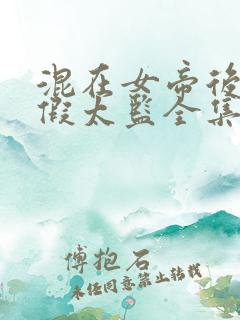 混在女帝後
假太監全集
傅抱石
未经同意禁止转载